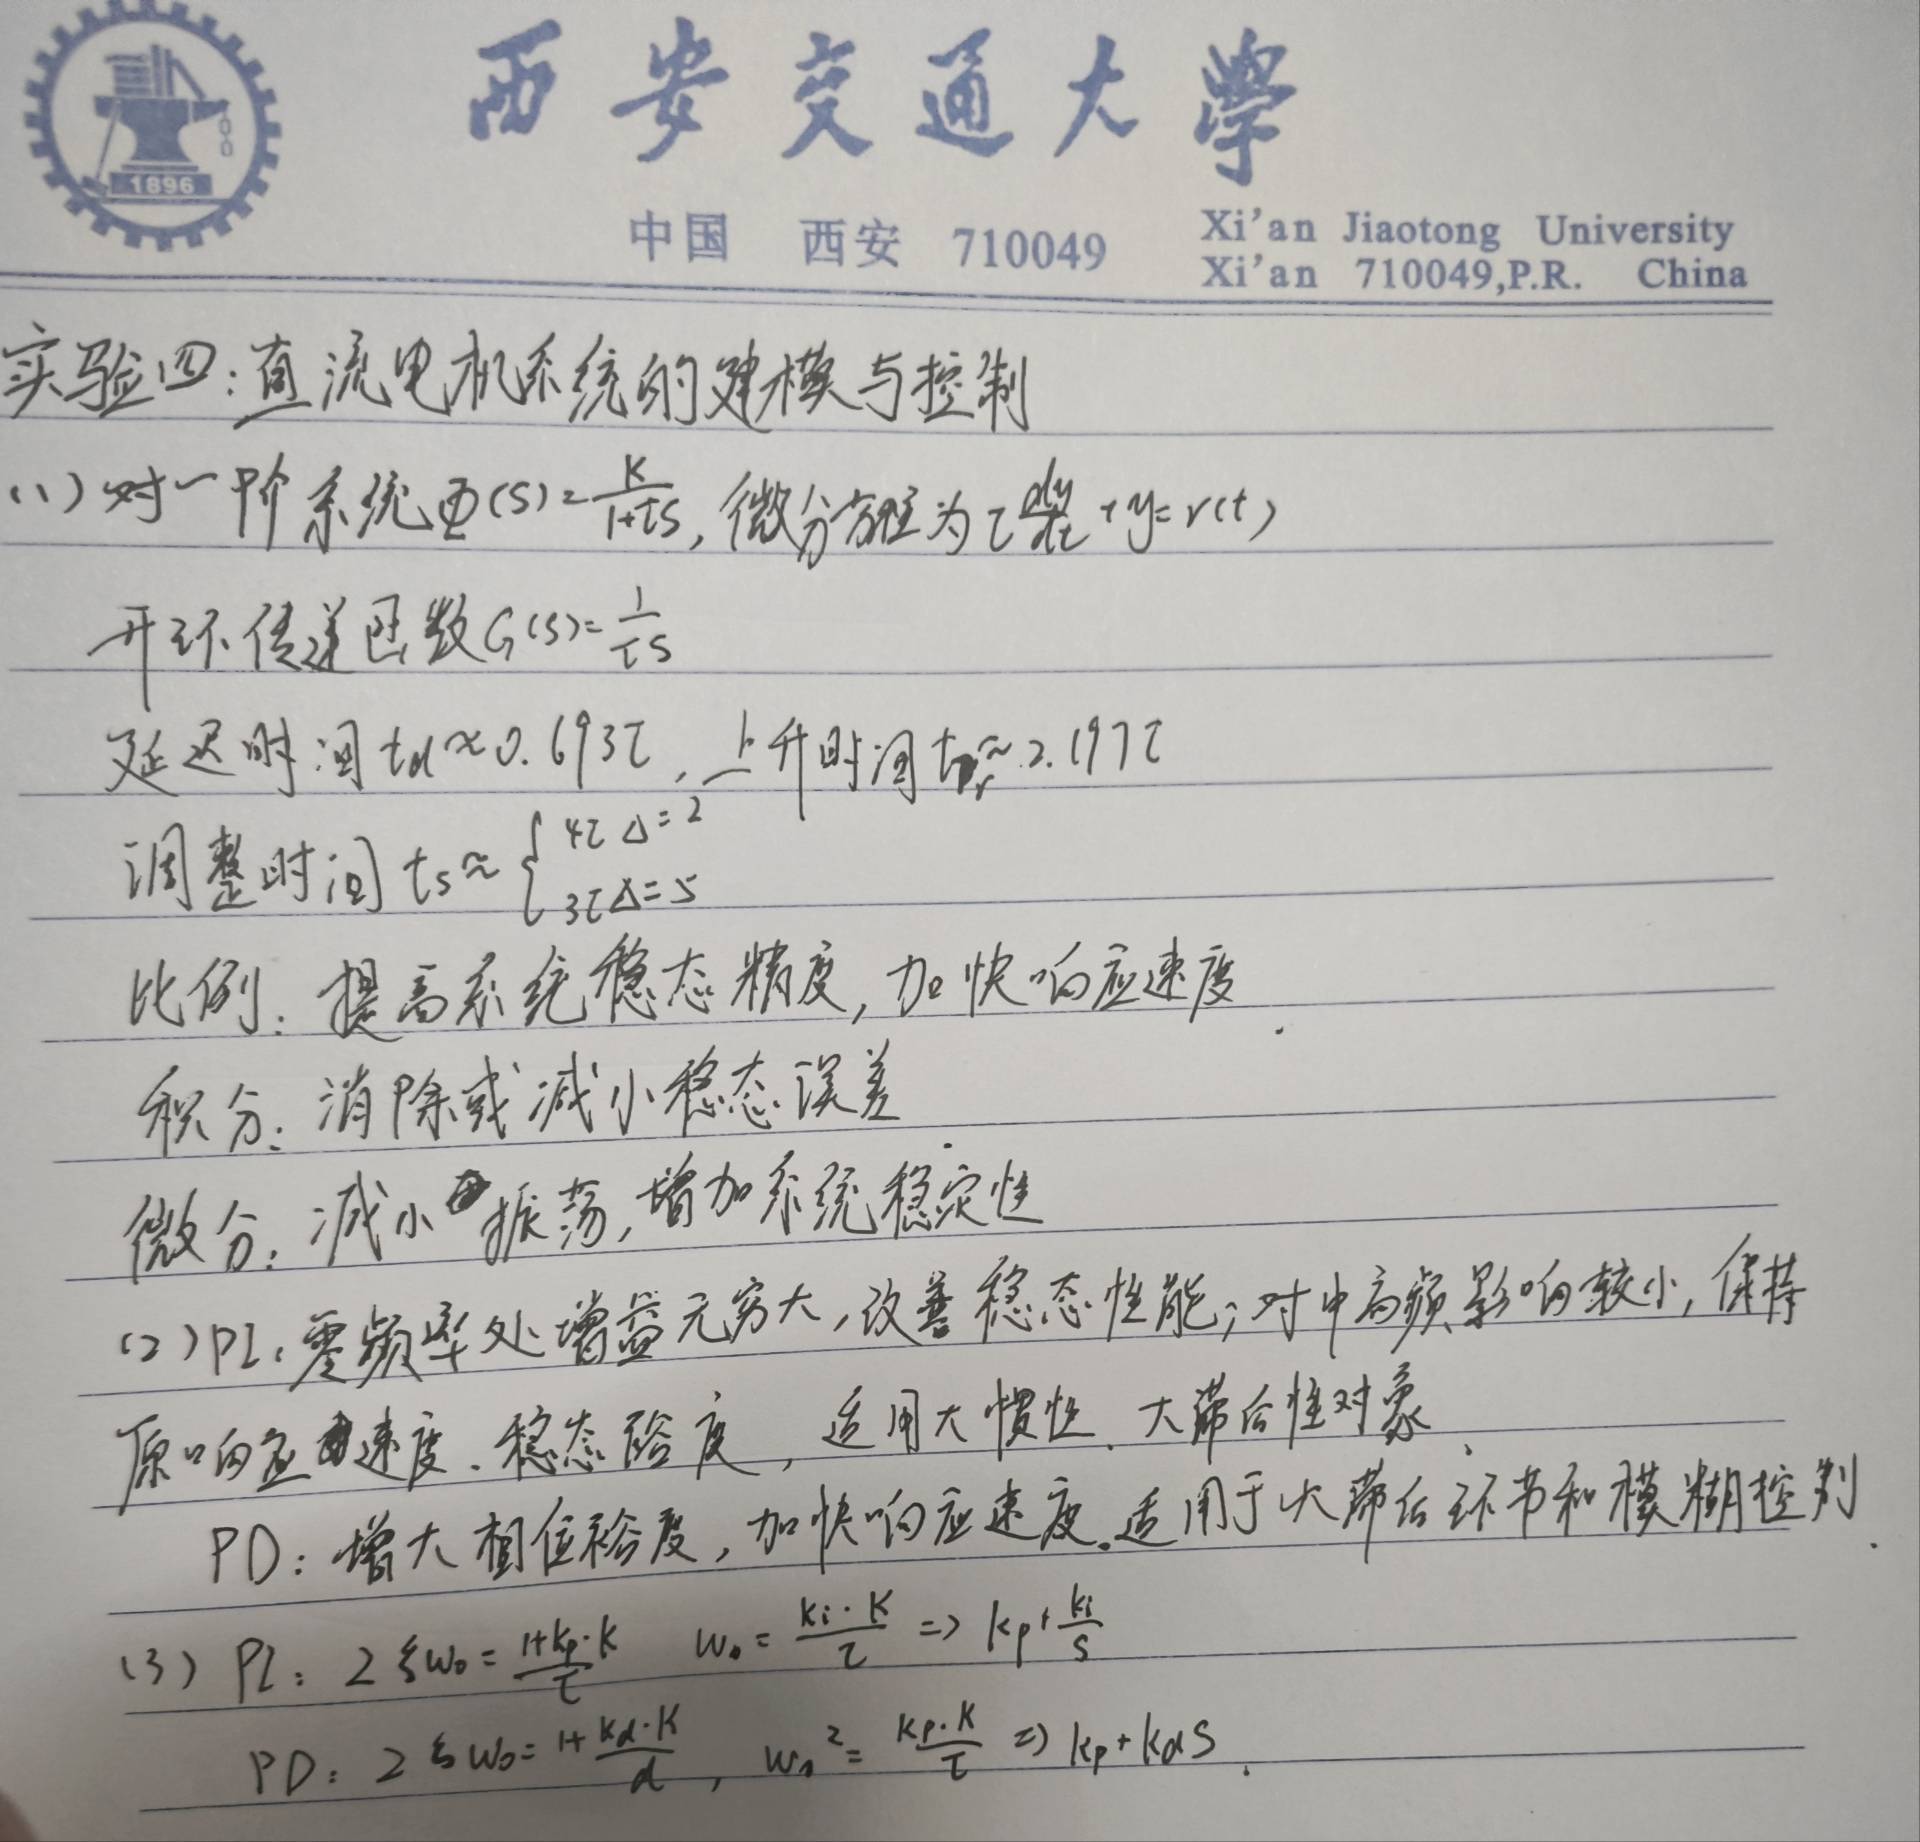 1896
西安交通大學
中国 西安 710049
Xi'an Jiaotong University
Xi'an 710049,P.R. China
实验四:直流电机系统的建模与控制
(1)对一阶系统Φ(s)=K/(1+τs),微分方程为τdy/dt+y=r(t)
开环传递函数G(s)=1/τs
延迟时间td≈0.693τ,上升时间tr≈2.197τ
调整时间ts≈{4τ Δ=2
3τ Δ=5
比例:提高系统稳态精度,加快响应速度.
积分:消除或减小稳态误差.
微分:减小振荡,增加系统稳定性
(2)PI:零频率处增益无穷大,改善稳态性能;对中高频影响较小,保持
原响应速度、稳态裕度,适用大惯性、大滞后性对象.
PD:增大相位裕度,加快响应速度.适用于大滞后环节和模糊控制.
(3)PI:2ξω0=(1+kp·K)/τ ω0=(ki·K)/τ => kp+ki/s
PD:2ξω0=1+(kd·K)/d,ω0²=(kp·K)/τ => kp+kds.